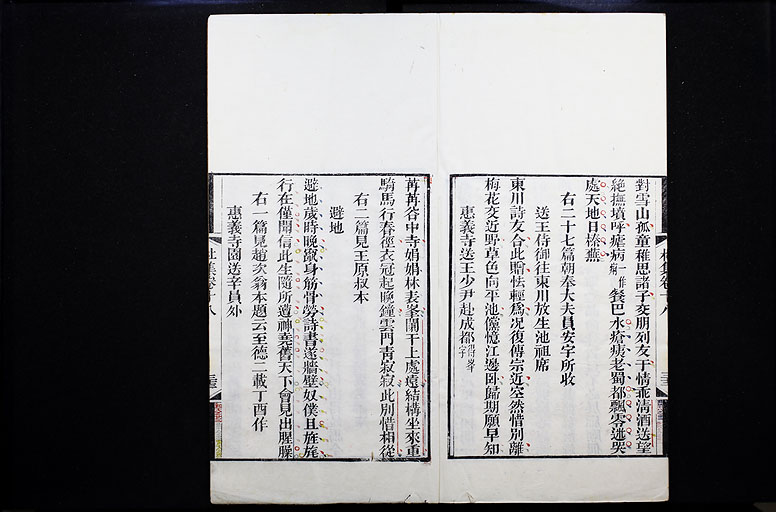 對雪山孤童稚思諸子交朋列友于情乖清酒送望
絶撫墳呼瘧病一作瘌餐巴水瘡痍老蜀都飄零迷哭
處天地日榛蕪
右二十七篇朝奉大夫員安宇所收
送王侍御往東川放生池祖席
東川詩友合此贈怯輕爲况復傳宗近空然惜別離
梅花交近野草色向平池儻憶江邊卧歸期願早知
惠義寺送王少尹赴成都
苒苒谷中寺娟娟林表峯闌干上處遠結構坐來重
騎馬行春徑衣冠起晚鐘雲門青寂寂此別惜相從
右二篇見王原叔本
避地
避地歲時晚竄身筋骨勞詩書遂牆壁奴僕且旌旄
行在僅聞信此生隨所遭神堯舊天下會見出腥臊
右一篇見趙次翁本題云至德二載丁酉作
惠義寺園送辛員外
杜集卷十八